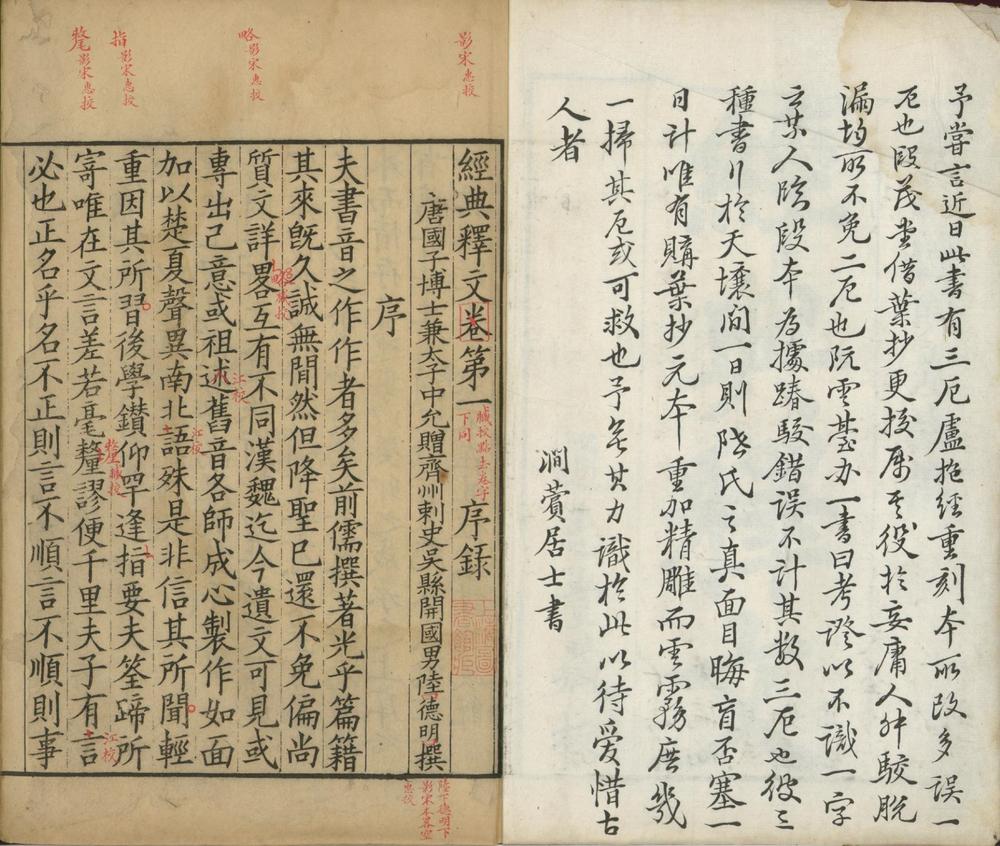 予嘗言近日此書有三厄盧抱經重刻本所改多誤一
厄也段茂堂借葉抄更挍屬其役於妄庸人舛駮脫
漏均所不免二厄也阮雲臺办一書曰考證以不識一字
之某人臨段本為據踳駮錯誤不計其數三厄也彼三
種書行於天壤間一日則陸氏之真面目晦盲否塞一
日計唯有購葉抄元本重加精雕而雲霧庶幾
一掃其厄或可救也予無其力識於此以待愛惜古
人者
澗薲居士書
影宋惠挍
略影宋惠挍
指影宋惠挍
氂影宋惠挍
經典釋文卷第一
臧挍點去卷字
下同
序錄
唐國子博士兼太子中允贈齊州刺史吳縣開國男陸德明撰
陸下德明下
影宋本畧空
惠挍
序
夫書音之作作者多矣前儒撰著光乎篇籍
其來旣久誠無間然但降聖已還不免偏尚
質文詳畧互有不同漢魏迄今遺文可見或
專出己意或祖述舊音各師成心製作如面
江校
加以楚夏聲異南北語殊是非信其所聞輕
江校
重因其所習後學鑽仰罕逢指要夫筌蹄所
寄唯在文言差若毫釐謬便千里夫子有言
江校
必也正名乎名不正則言不順言不順則事